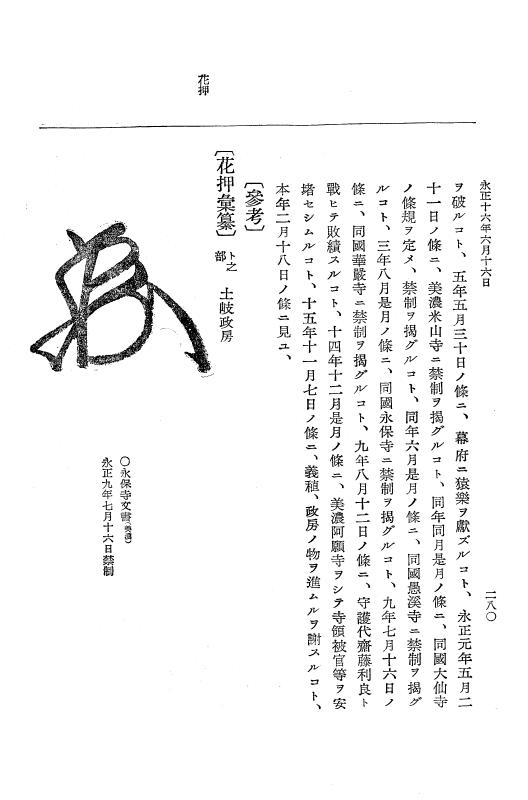 永正十六年六月十六日
二八〇
ヲ破ルコト、五年五月三十日ノ條ニ、幕府ニ猿樂ヲ獻ズルコト、永正元年五月二
十一日ノ條ニ、美濃米山寺ニ禁制ヲ揭グルコト、同年同月是月ノ條ニ、同國大仙寺
ノ條規ヲ定メ、禁制ヲ揭グルコト、同年六月是月ノ條ニ、同國愚溪寺ニ禁制ヲ揭グ
ルコト、三年八月是月ノ條ニ、同國永保寺ニ禁制ヲ揭グルコト、九年七月十六日ノ
條ニ、同國華嚴寺ニ禁制ヲ揭グルコト、九年八月十二日ノ條ニ、守護代齋藤利良ト
戰ヒテ敗績スルコト、十四年十二月是月ノ條ニ、美濃阿願寺ヲシテ寺領被官等ヲ安
堵セシムルコト、十五年十一月七日ノ條ニ、義稙、政房ノ物ヲ進ムルヲ謝スルコト、
本年二月十八日ノ條ニ見ユ、
〔參考〕
〔花押彙纂〕 ト之部 土岐政房
花押
〇永保寺文書(美濃)
永正九年七月十六日禁制